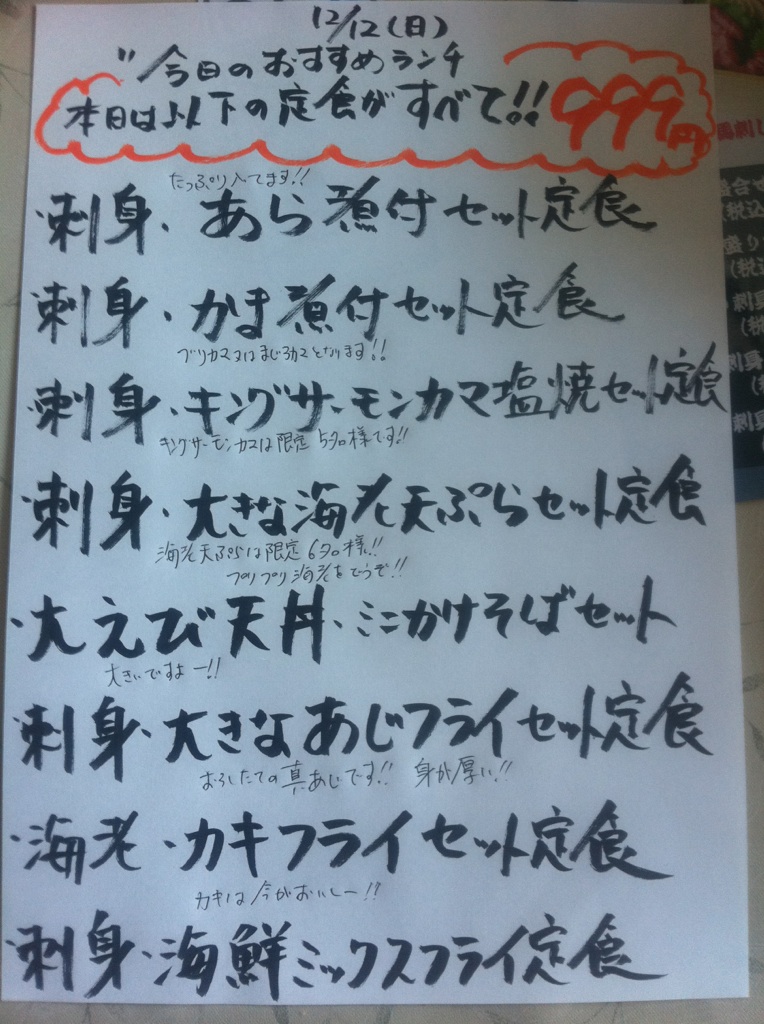 12/12(日)
〃今日のおすすめランチ
本日は以下の定食がすべて!! 999円
たっぷり入てます!!
・刺身・あら煮付セット定食
・刺身・かま煮付セット定食
ブリカマ又はまじろカマとなります!!
・刺身・キングサーモンカマ塩焼セット定食
キングサーモンカマは限定5名様です!!
・刺身・大きな海老天ぷらセット定食
海老天ぷらは限定6名様!!
プリプリ海老をどうぞ!!
・大えび天丼・ミニかけそばセット
大きいですよー!!
・刺身・大きなあじフライセット定食
おろしたての真あじです!! 身が厚い!!
・海老・カキフライセット定食
カキは今がおいしー!!
・刺身・海鮮ミックスフライ定食
刺し
盛合せ
(税込
盛り
(税込
刺身
刺身
刺身